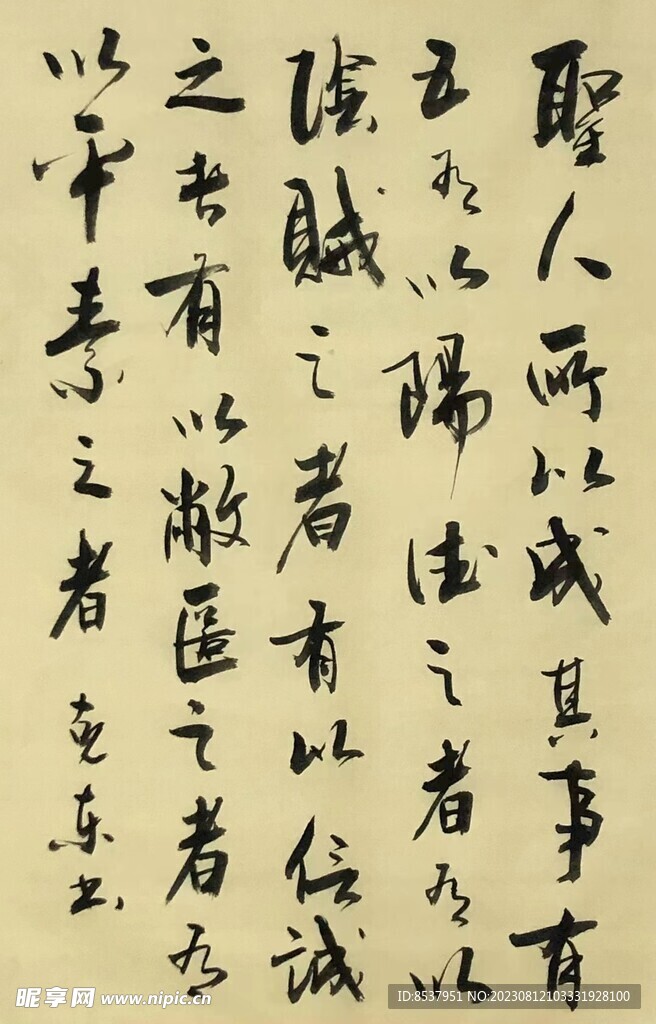 聖人所以成其事有
五有以陽德之者有以
陰賊之者有以信誠
之者有以敝匿之者有
以平素之者
克東書
昵享网 www.nipic.cn
ID:8537951 NO:20230812103331928100